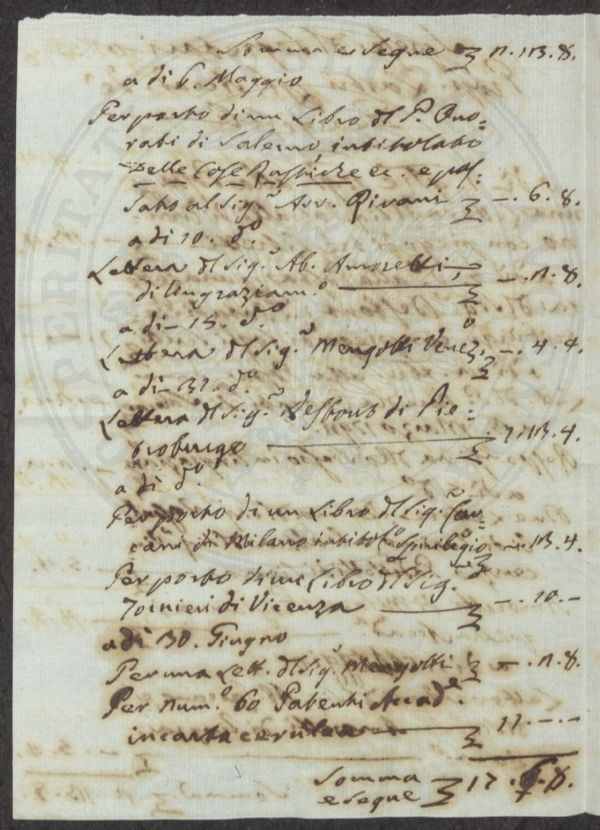 Somma e Segue 
a di 6. Maggio
Per porto di un Libro del P. Ono=
rati di Salerno, intitolato
Delle Cose Rustiche ec. e pas=
sato al Sig.r Avv. Pivani —. 6. 8.
a di 10. d.o
Lettera del Sig.r Ab. Amoretti,
di ringraziam.o 8.
a di 15. d.o
Lettera del Sig.r Mengotti Venez.o —. 4. 4.
a di 31. d.o
Lettera del Sig.r de Pie=
troburgo 4.
a di d.o
Per porto di un Libro del Sig.r Car=
cani di Milano intitol.o Spicilegio 4.
Per porto di un Libro del Sig.
Tornieri di Vicenza —. 10. —
a di 30. Giugno
Per una Lett. del Sig.r Mengotti 8.
Per num.o 60 Patenti Accad.e
in carta cerulea 11. — —
Somma
e segue 17.